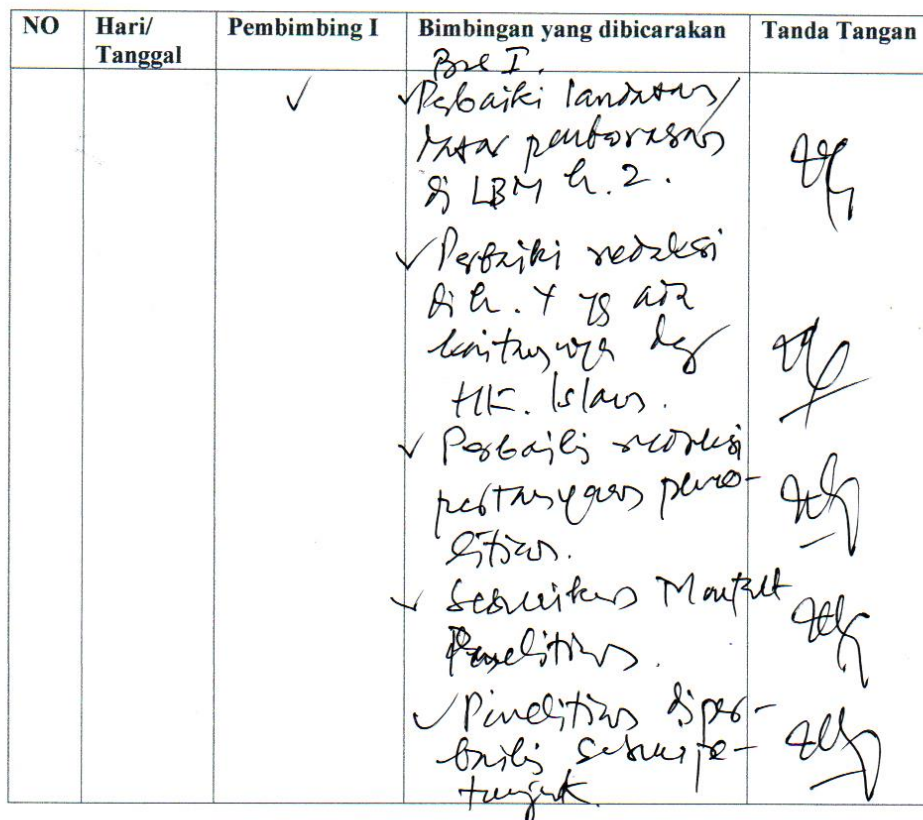 NO Hari/ Pembimbing I Bimbingan yang dibicarakan Tanda Tangan
Tanggal
Bab I.
✓ ✓ Perbaiki landasan/
dasar pembahasan
di LBM h. 2.
✓ Perbaiki redaksi
di h. 4 yg ada
kaitannya dg
HK. Islam.
✓ Perbaiki redaksi
pertanyaan pene-
litian.
✓ Sesuaikan Manfaat
Penelitian.
✓ Penelitian diper-
baiki sesuai pe-
tunjuk.